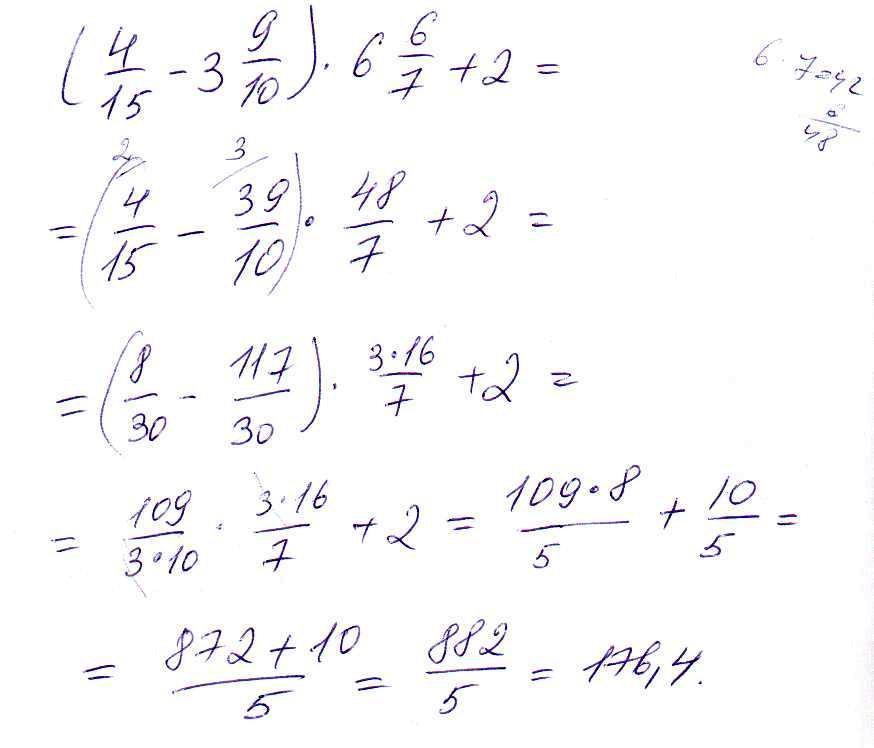 (4/15 - 3 9/10) · 6 6/7 + 2 =
6 · 7 = 42
48
= (4/15 - 39/10) · 48/7 + 2 =
2 3
= (8/30 - 117/30) · 3·16/7 + 2 =
= 109/3·10 · 3·16/7 + 2 = 109·8/5 + 10/5 =
= 872+10/5 = 882/5 = 176,4.